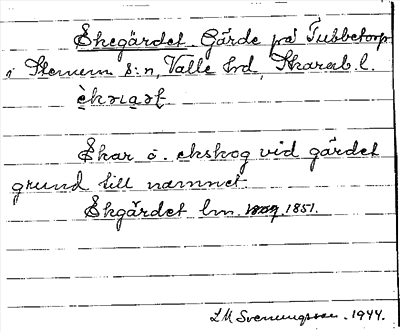 Ekegärdet. Gärde på Tubbetorp
i Stenum s:n, Valle hrd, Skarab. l.
Ekar o. ekskog vid gärdet
grund till namnet.
Ekgärdet lm. 1851.
L M Svenungsson. 1944.